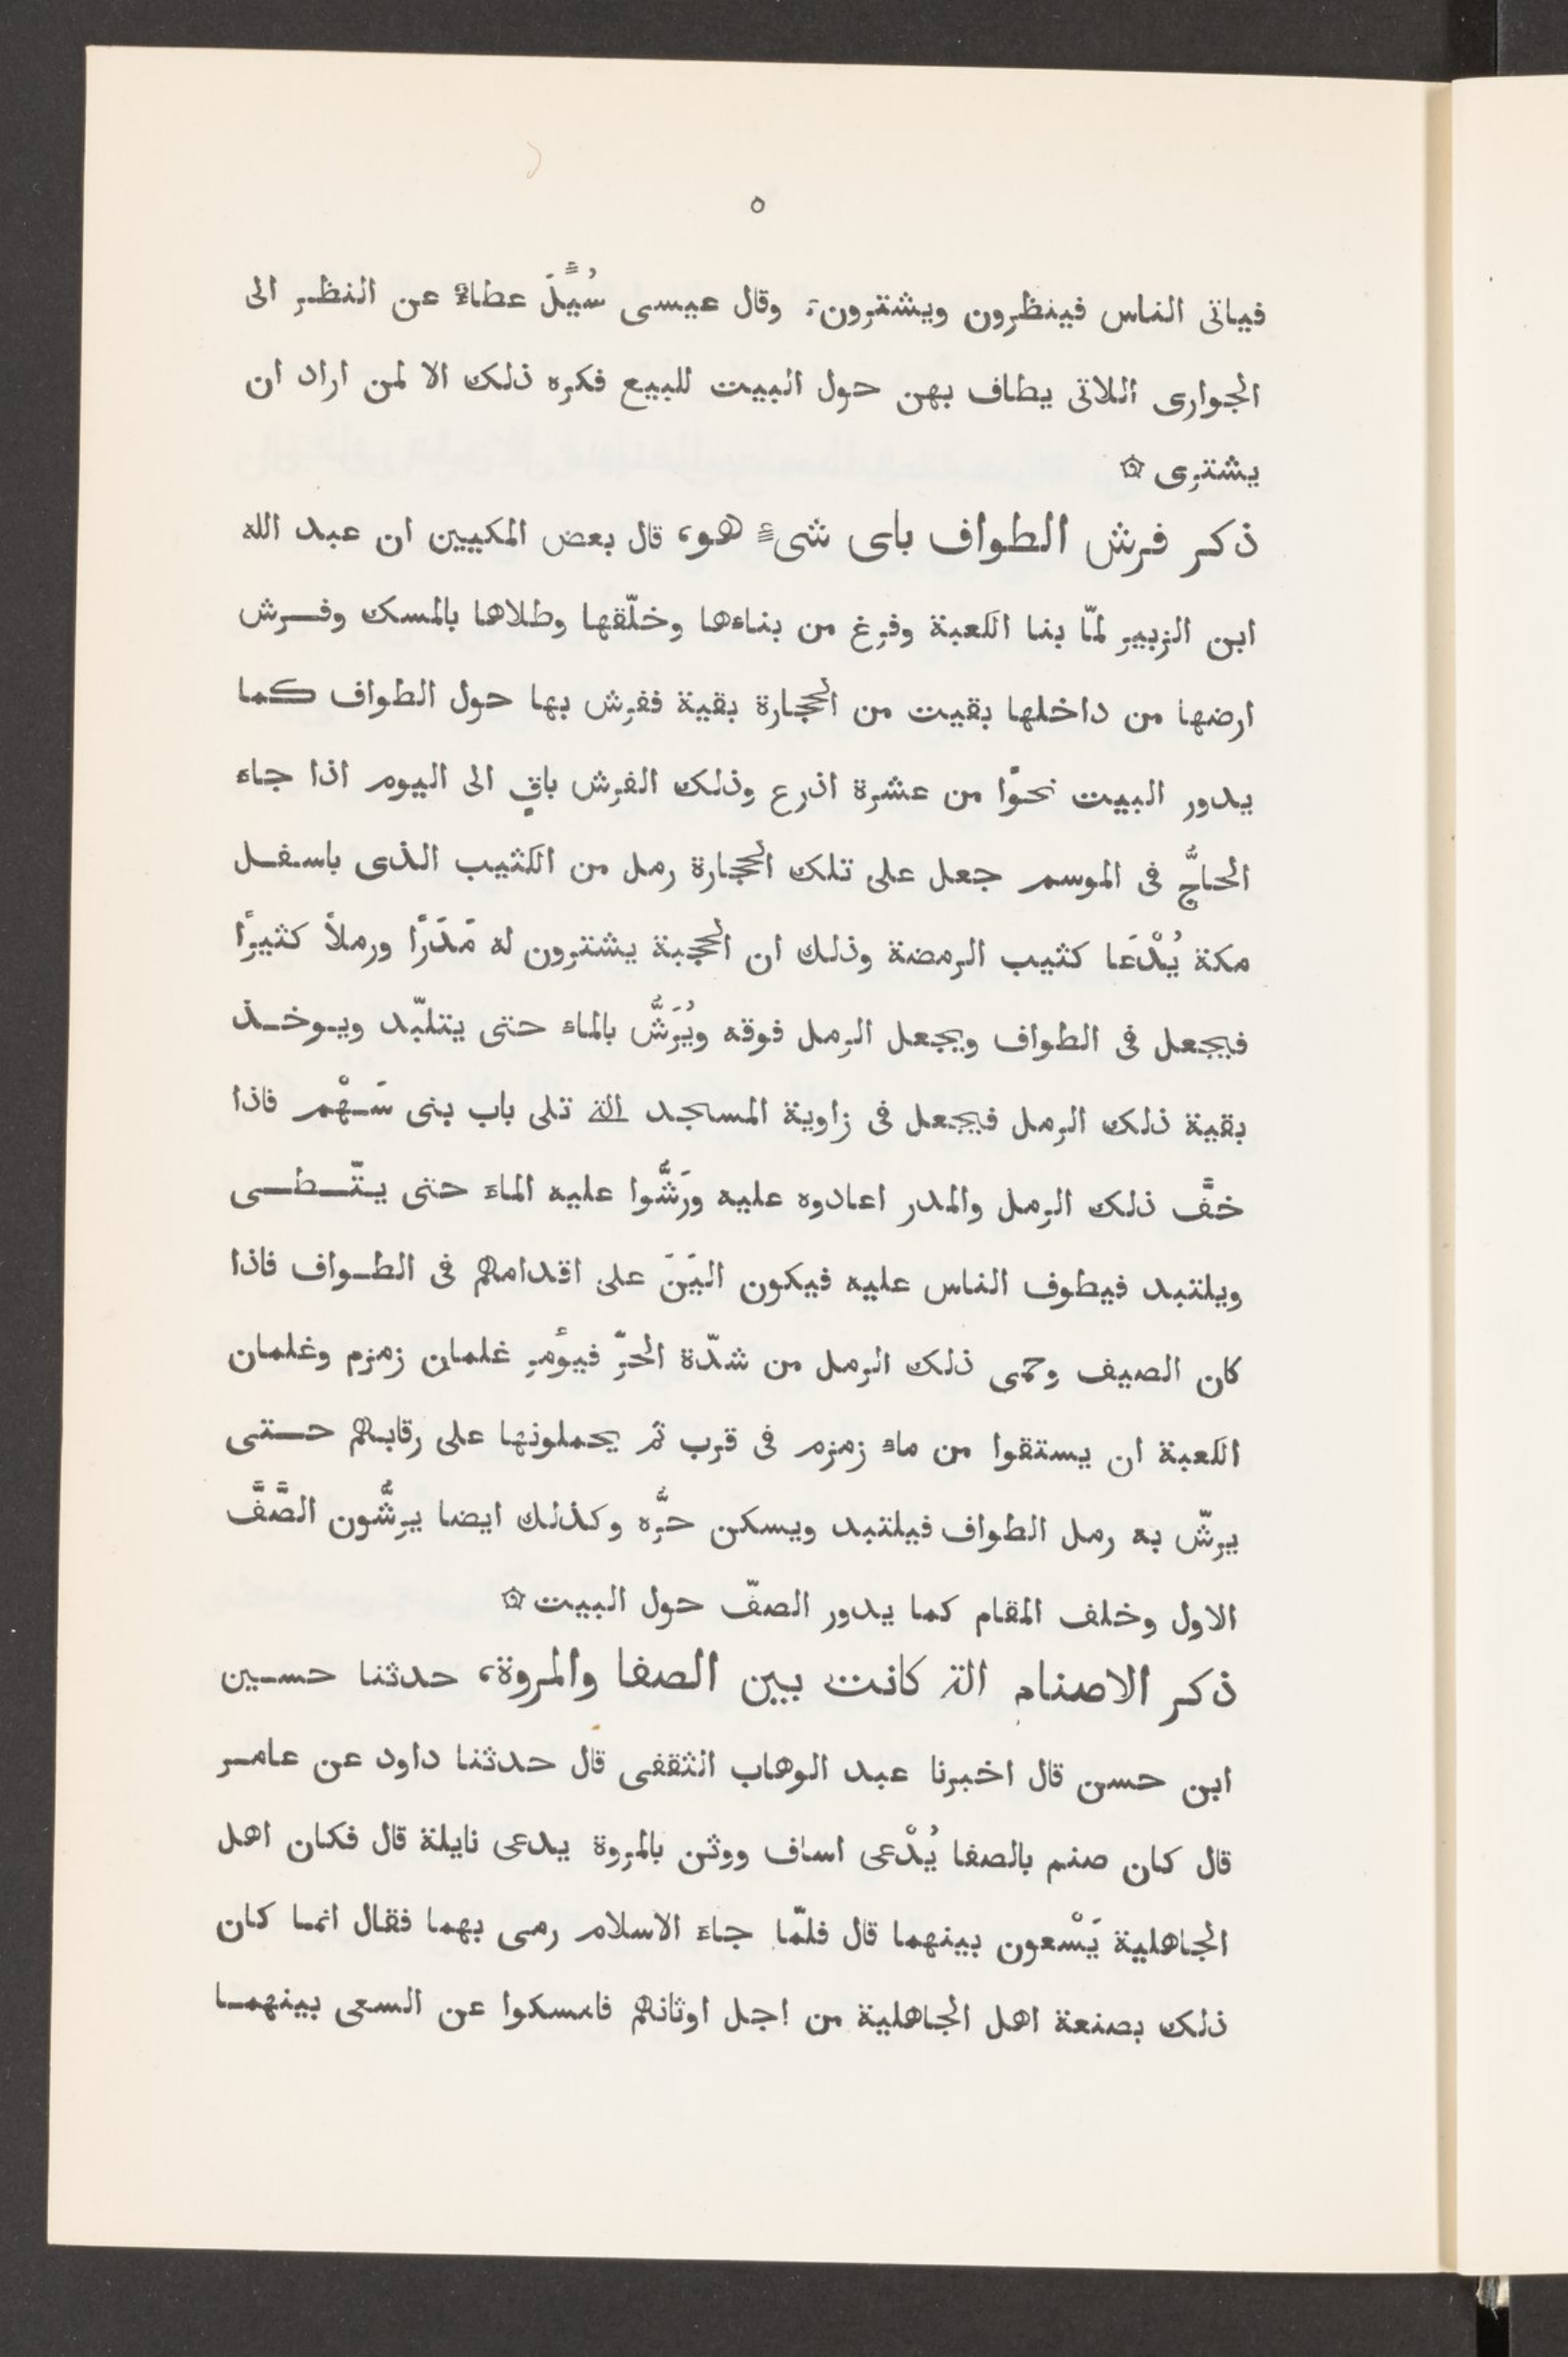 ٥
فياتى الناس فينظرون ويشترون، وقال عيسى سُيِّلَ عطاءٌ عن النظر الى
الجوارى اللاتى يطاف بهن حول البيت للبيع فكره ذلك الا لمن اراد ان
يشترى ۞
ذكر فرش الطواف باى شىءٍ هو، قال بعض المكيين ان عبد الله
ابن الزبير لمّا بنا الكعبة وفرغ من بناءها وخلّقها وطلاها بالمسك وفرش
ارضها من داخلها بقيت من الحجارة بقية ففرش بها حول الطواف كما
يدور البيت نحوًا من عشرة اذرع وذلك الفرش باقٍ الى اليوم اذا جاء
الحاجُّ فى الموسم جعل على تلك الحجارة رمل من الكثيب الذى باسفل
مكة يُدْعَا كثيب الرمضة وذلك ان الحجبة يشترون له مَدَرًا ورملاً كثيرًا
فيجعل فى الطواف ويجعل الرمل فوقه ويُرَشُّ بالماء حتى يتلبّد ويوخذ
بقية ذلك الرمل فيجعل فى زاوية المسجد التى تلى باب بنى سَهْم فاذا
خفَّ ذلك الرمل والمدر اعادوه عليه ورَشُّوا عليه الماءَ حتى يتّطى
ويلتبد فيطوف الناس عليه فيكون اليَنَ على اقدامهم فى الطواف فاذا
كان الصيف وحمى ذلك الرمل من شدّة الحرّ فيؤمر غلمان زمزم وغلمان
الكعبة ان يستقوا من ماء زمزم فى قرب ثم يحملونها على رقابهم حتى
يرشّ به رمل الطواف فيلتبد ويسكن حرُّه وكذلك ايضا يرشُّون الصَّفَّ
الاول وخلف المقام كما يدور الصفّ حول البيت ۞
ذكر الاصنام التى كانت بين الصفا والمروة، حدثنا حسين
ابن حسن قال اخبرنا عبد الوهاب الثقفى قال حدثنا داود عن عامر
قال كان صنم بالصفا يُدْعى اساف ووثن بالمروة يدعى نايلة قال فكان اهل
الجاهلية يَسْعون بينهما قال فلمّا جاءَ الاسلام رمى بهما فقال انما كان
ذلك بصنعة اهل الجاهلية من اجل اوثانهم فامسكوا عن السعى بينهما